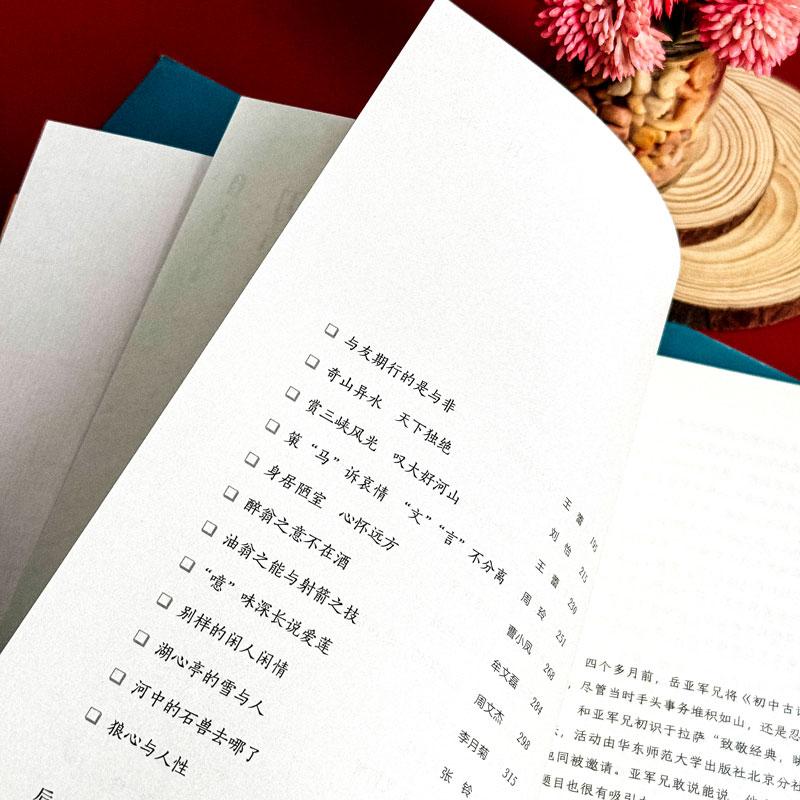 与友期行的是与非 王蕾 195
奇山异水 天下独绝 刘怡 215
赏三峡风光 叹大好河山 王蕾 230
策“马”诉哀情 “文”“言”不分离 周玲 251
身居陋室 心怀远方 曹小凤 268
醉翁之意不在酒 牟文磊 284
油翁之能与射箭之技 周文杰 298
“噫”味深长说爱莲 李月菊 315
别样的闲人闲情 张铃
湖心亭的雪与人
河中的石兽去哪了
狼心与人性
后
四个多月前，岳亚军兄将《初中古诗
，尽管当时手头事务堆积如山，还是忍
和亚军兄初识于拉萨“致敬经典，
，活动由华东师范大学出版社北京分社
也同被邀请。亚军兄敢说能说，
题目也很有吸引